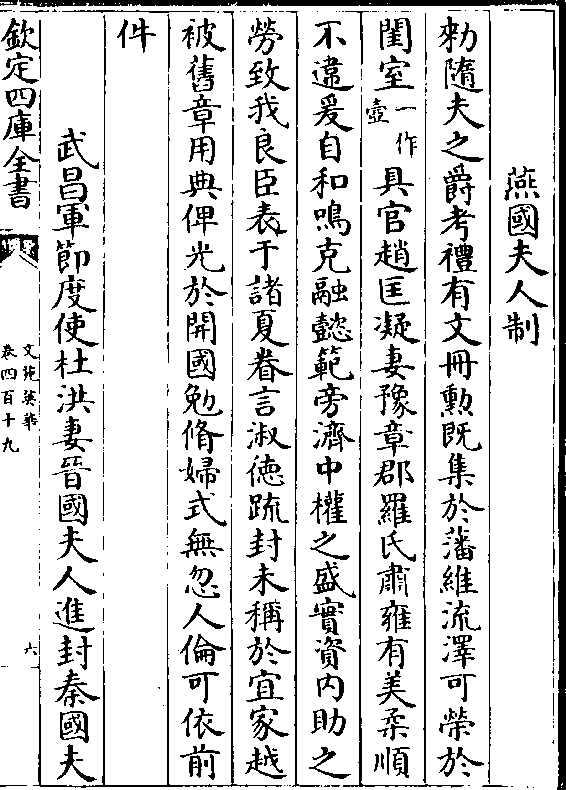 燕國夫人制
勑隨夫之爵考禮有文冊勲既集於藩維流澤可榮於
閨室一作壼具官趙匡凝妻豫章郡羅氏肅雍有美柔順
不違爰自和鳴克融懿範旁濟中權之盛實資内助之
勞致我良臣表于諸夏眷言淑徳疏封未稱於宜家越
被舊章用典俾光於開國勉脩婦式無忽人倫可依前
件
武昌軍節度使杜洪妻晉國夫人進封秦國夫
欽定四庫全書
文苑英華
卷四百十九
六